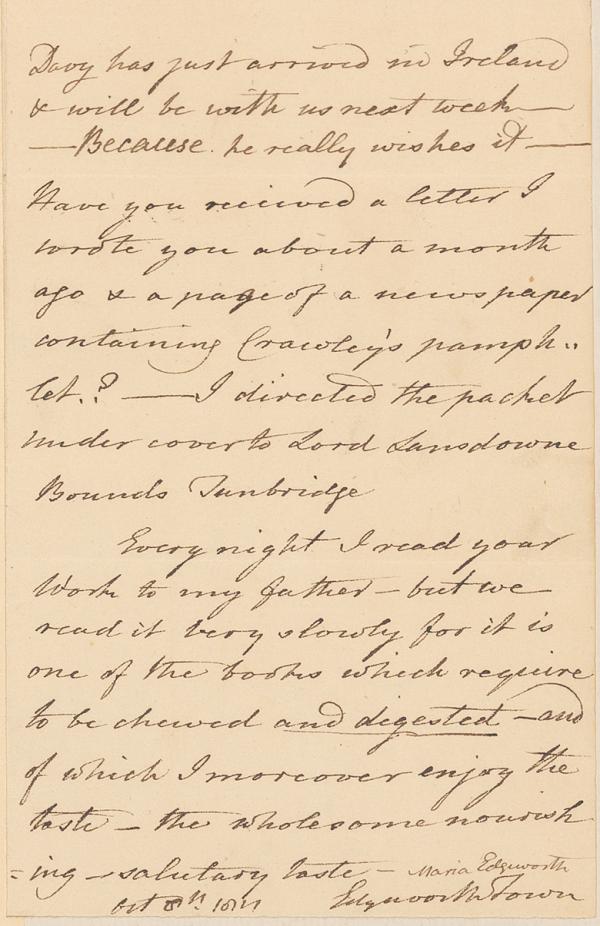 Davy has just arrived in Ireland
& will be with us next week —
— Because he really wishes it —
Have you received a letter I
wrote you about a month
ago & a page of a newspaper
containing Crawley's pamph..
let..? — I directed the packet
under cover to Lord Lansdowne
Bounds Tunbridge
Every night I read your
Work to my father – but we
read it very slowly for it is
one of the books which require
to be chewed and digested – and
of which I moreover enjoy the
taste – the wholesome nourish
=ing – salutary taste – Maria Edgworth
Oct 8th Edgworth Town